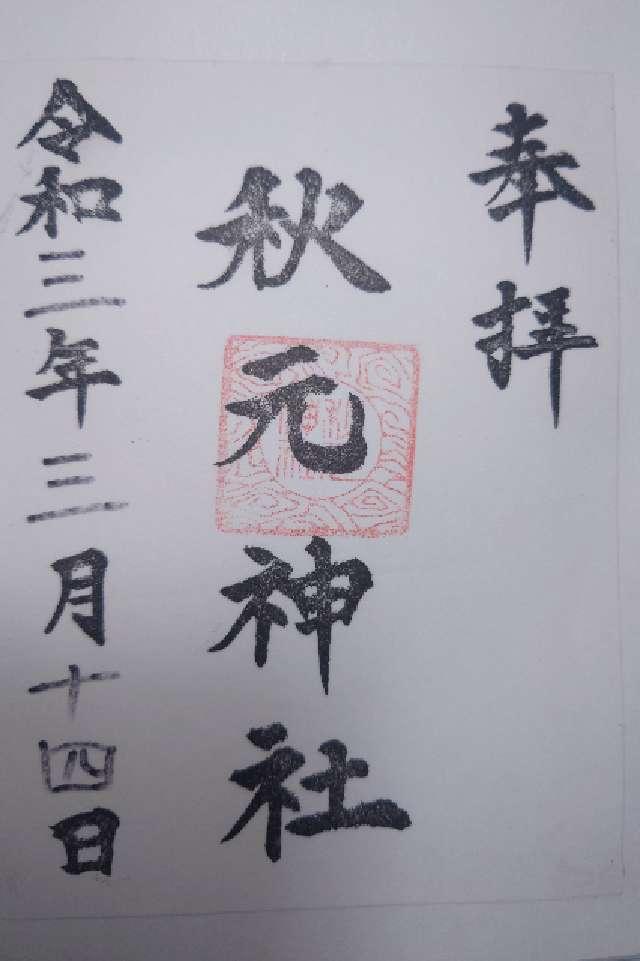 奉拝
秋元神社
令和三年三月十四日